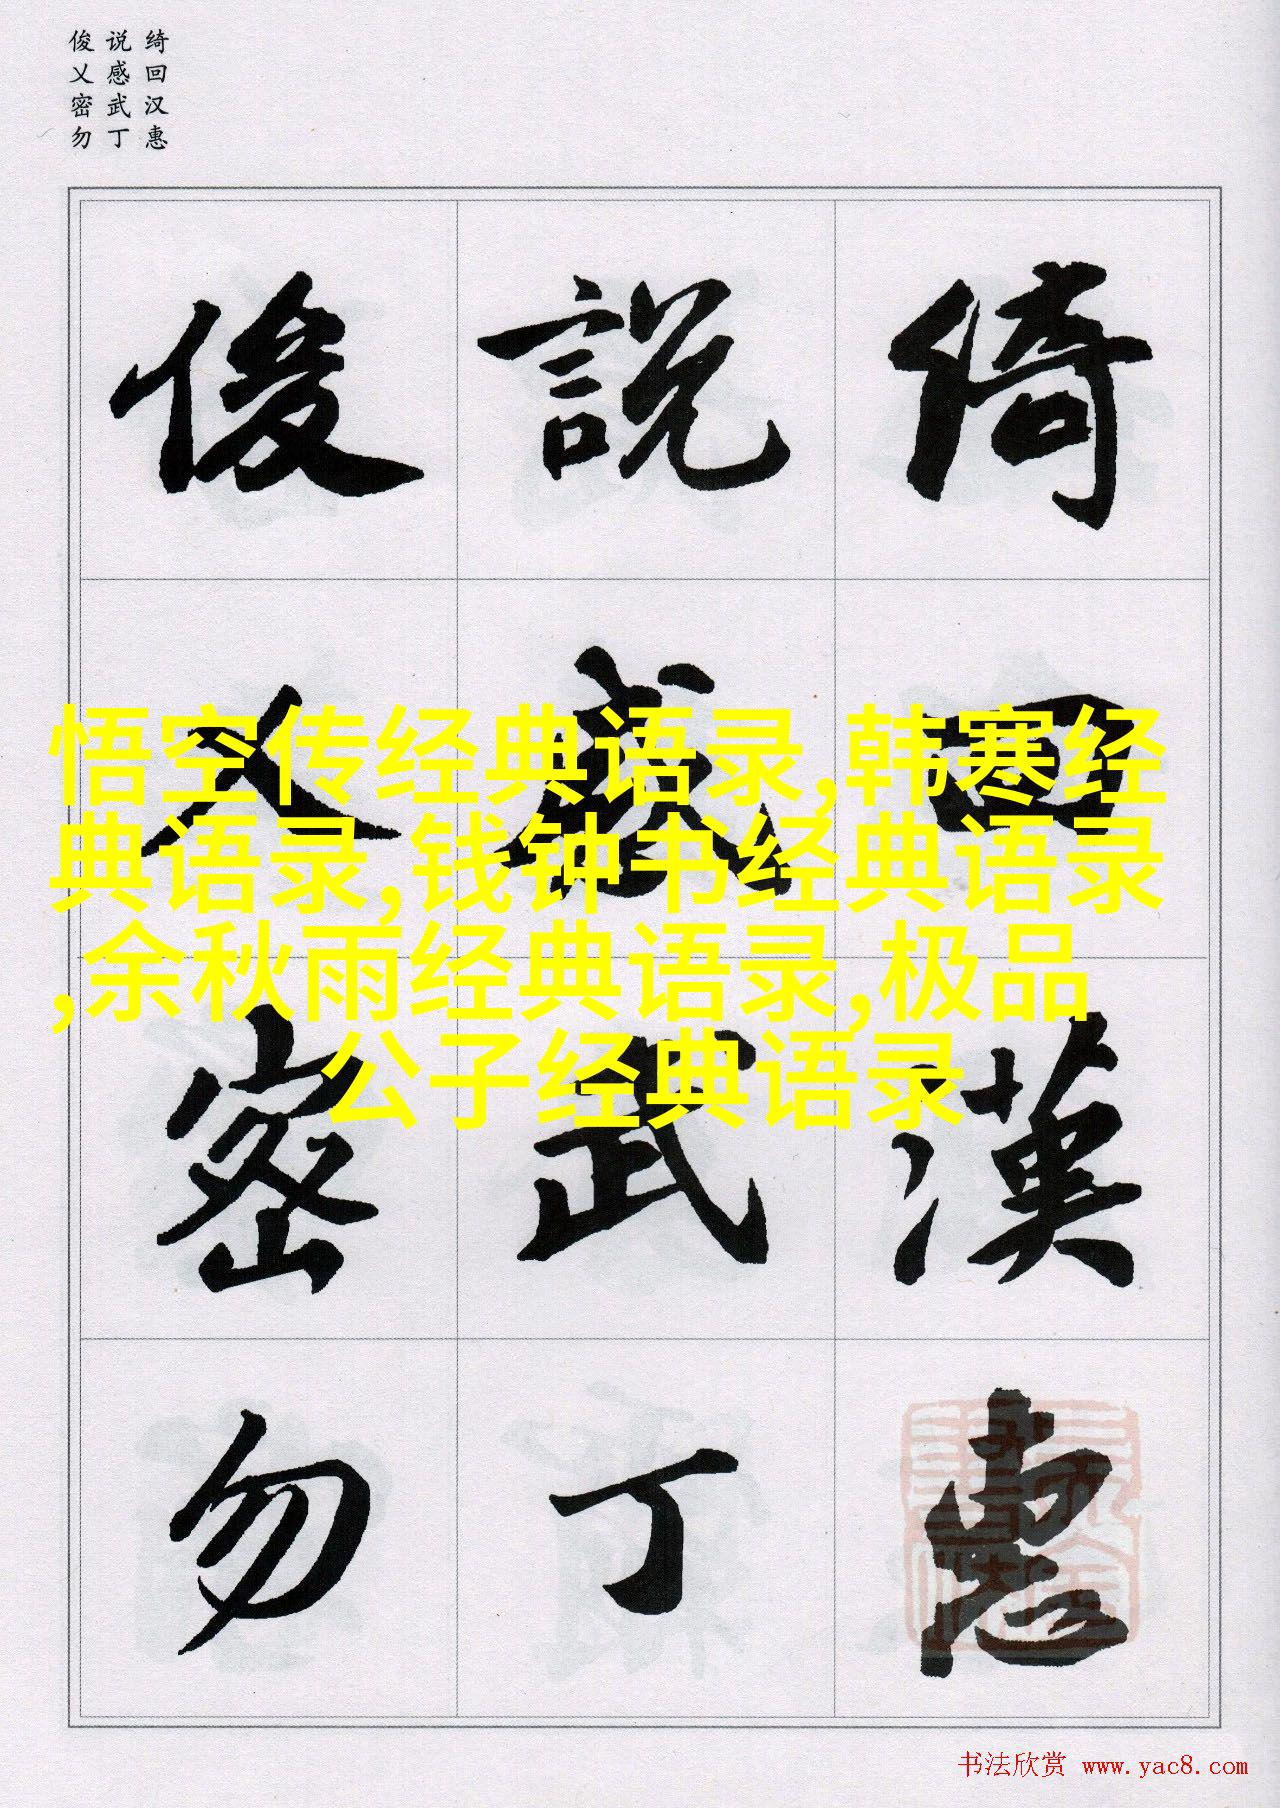 俊 说 绮
乂 感 回
密 武 汉
勿 丁 惠
俊 說 綺
乂 感 回
密 武 漢
勿 丁 惠
悟空传经典语录,韩寒经
典语录,钱钟书经典语录
,余秋雨经典语录,极品
公子经典语录
书法欣赏 www.yac8.com